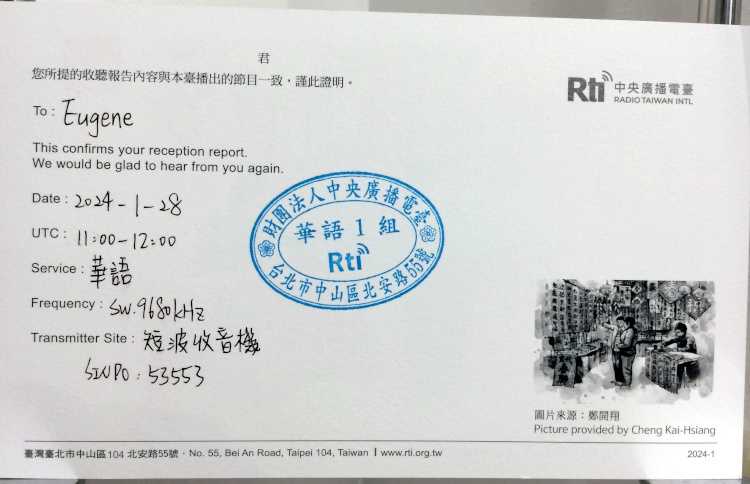 君
您所提的收聽報告內容與本臺播出的節目一致，謹此證明。
Rti 中央廣播電臺
RADIO TAIWAN INTL
To : Eugene
This confirms your reception report.
We would be glad to hear from you again.
Date : 2024-1-28
UTC : 11:00-12:00
Service : 華語
Frequency : SW.9680kHz
Transmitter Site : 短波收音機
SINPO : 53553
財團法人中央廣播電臺
華語1組
Rti
台北市中山區北安路55號
圖片來源：鄭開翔
Picture provided by Cheng Kai-Hsiang
臺灣臺北市中山區104 北安路55號．No. 55, Bei An Road, Taipei 104, Taiwan I www.rti.org.tw
2024-1